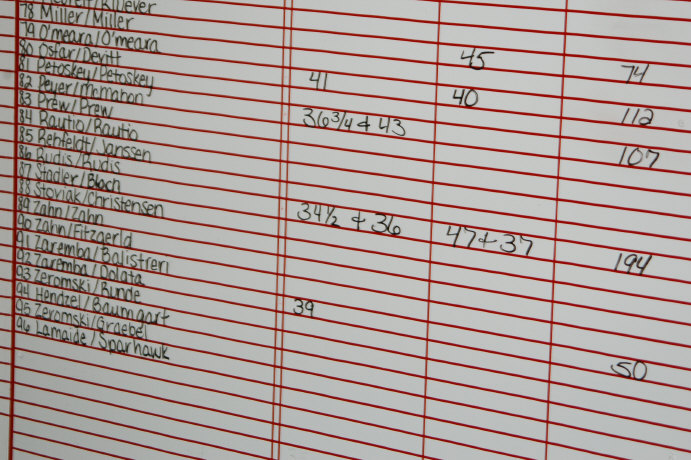 78 Miller/Miller
79 O'meara/O'meara
80 Ostar/Devitt
81 Petoskey/Petoskey
82 Peuer/McMahon
83 Prew/Prew
84 Rautio/Rautio
85 Rehfeldt/Janssen
86 Rudis/Rudis
87 Stadler/Bloch
88 Stoviak/Christensen
89 Zahn/Zahn
90 Zahn/Fitzgerld
91 Zaremba/Balistreri
92 Zaremba/Dolata
93 Zeromski/Runde
94 Hendzel/Baumgart
95 Zeromski/Graebel
96 Lamaide/Sparhawk
41
36 3/4 + 43
34 1/2 + 36
39
45
40
47+37
74
112
107
194
50